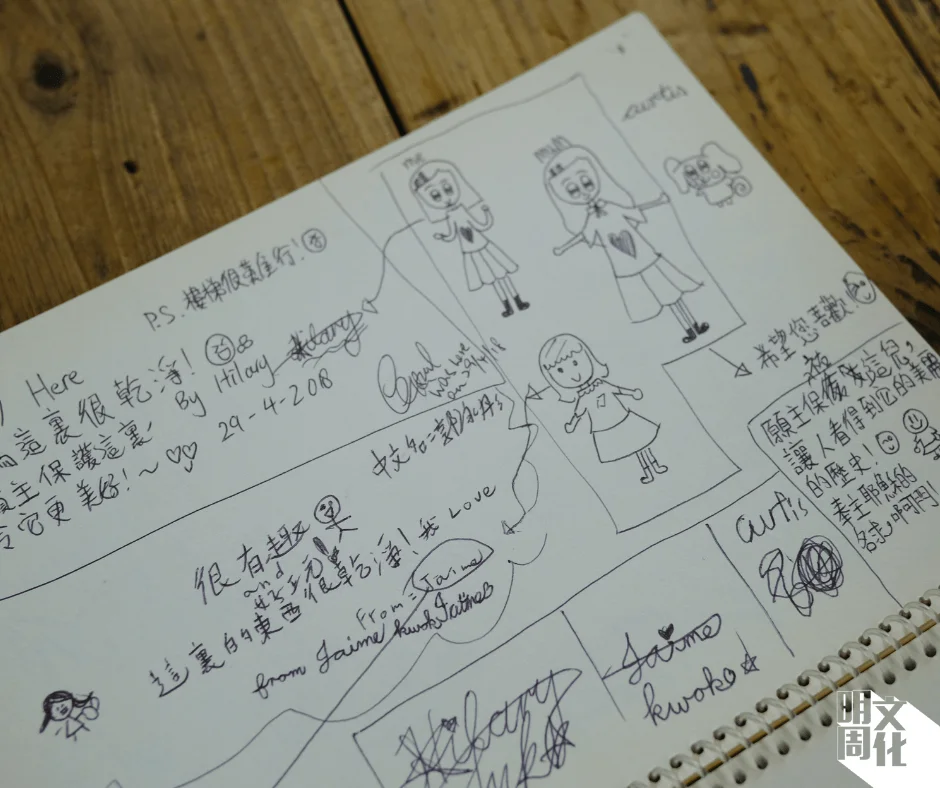 P.S. 樓梯很難行!
Here
這裏很乾淨!
主保護這裏,
令它更美好!~
By Hilary
29-4-208
me
mum
curtis
was here
on 29/4/18
希望您喜歡!
願主保
這兒,
讓人看得到它的美麗
的歷史!
奉主耶穌的
名求 啊門!
很有趣
and
這裏的東西很乾淨! 我 Love
From = Jaime
from Jaime kwok
Hilary
Jaime
kwok
curtis
明周文化